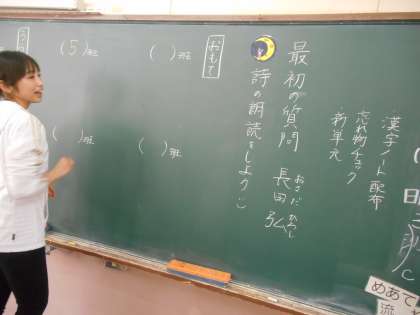 日
めあて
流
・漢字ノート配布
・忘れ物チェック
・新単元
最初の質問 長田 弘
おさだ ひろし
詩の朗読をしよう
おもて
( )班
( )班
(5)班
( )班